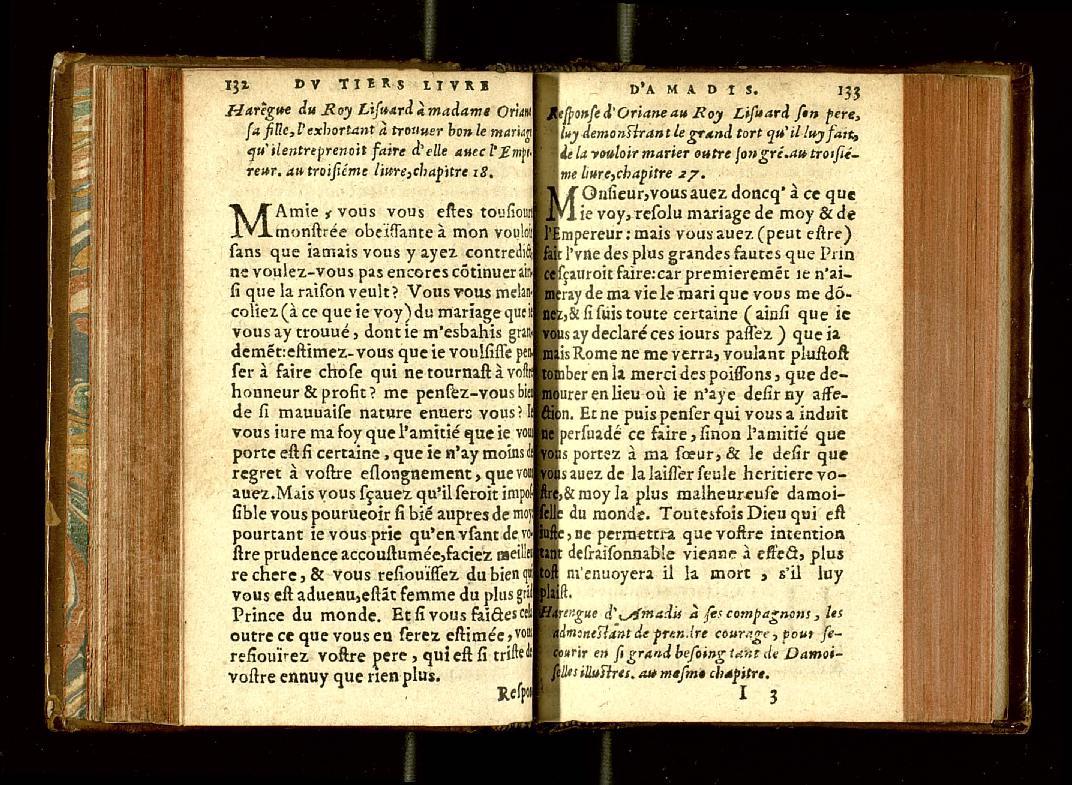 132 DV TIERS LIVRE
Harēgue du Roy Lisuard à madame Oriane
sa fille, l'exhortant à trouuer bon le mariage
qu'il entreprenoit faire d'elle auec l'Empe-
reur. au troisiéme liure, chapitre 18.
MAmie, vous vous estes tousiours
monstrée obeïssante à mon vouloir
sans que iamais vous y ayez contredict:
ne voulez-vous pas encores cōtinuer ain-
si que la raison veult? Vous vous melan-
coliez (à ce que ie voy) du mariage que ie
vous ay trouué, dont ie m'esbahis gran-
demēt: estimez-vous que ie voulsisse pen-
ser à faire chose qui ne tournast à vostre
honneur & profit? me pensez-vous bien
de si mauuaise nature enuers vous? Ie
vous iure ma foy que l'amitié que ie vous
porte est si certaine, que ie n'ay moins de
regret à vostre eslongnement, que vous
auez. Mais vous sçauez qu'il seroit impos-
sible vous pourueoir si biē aupres de moy
pourtant ie vous prie qu'en vsant de vo-
stre prudence accoustumée, faciez meilleu-
re chere, & vous resiouïssez du bien qui
vous est aduenu, estāt femme du plus grād
Prince du monde. Et si vous faictes cela
outre ce que vous en serez estimée, vous
resiouïrez vostre pere, qui est si triste de
vostre ennuy que rien plus.
Respon
D'AMADIS. 133
Response d'Oriane au Roy Lisuard son pere,
luy demonstrant le grand tort qu'il luy fait,
de la vouloir marier outre son gré. au troisié-
me liure, chapitre 27.
MOnsieur, vous auez doncq' à ce que
ie voy, resolu mariage de moy & de
l'Empereur: mais vous auez (peut estre)
fait l'vne des plus grandes fautes que Prin
ce sçauroit faire: car premieremēt ie n'ai-
meray de ma vie le mari que vous me dō-
nez, & si suis toute certaine (ainsi que ie
vous ay declaré ces iours passez) que ia
mais Rome ne me verra, voulant plustost
tomber en la merci des poissons, que de-
mourer en lieu où ie n'aye desir ny affe-
ction. Et ne puis penser qui vous a induit
ne persuadé ce faire, sinon l'amitié que
vous portez à ma sœur, & le desir que
vous auez de la laisser seule heritiere vo-
stre, & moy la plus malheureuse damoi-
selle du monde. Toutesfois Dieu qui est
iuste, ne permettra que vostre intention
tant desraisonnable vienne à effect, plus
tost m'enuoyera il la mort, s'il luy
plaist.
Harengue d'Amadis à ses compagnons, les
admonestant de prendre courage, pour se-
courir en si grand besoing tant de Damoi-
selles illustres. au mesme chapitre.
I 3